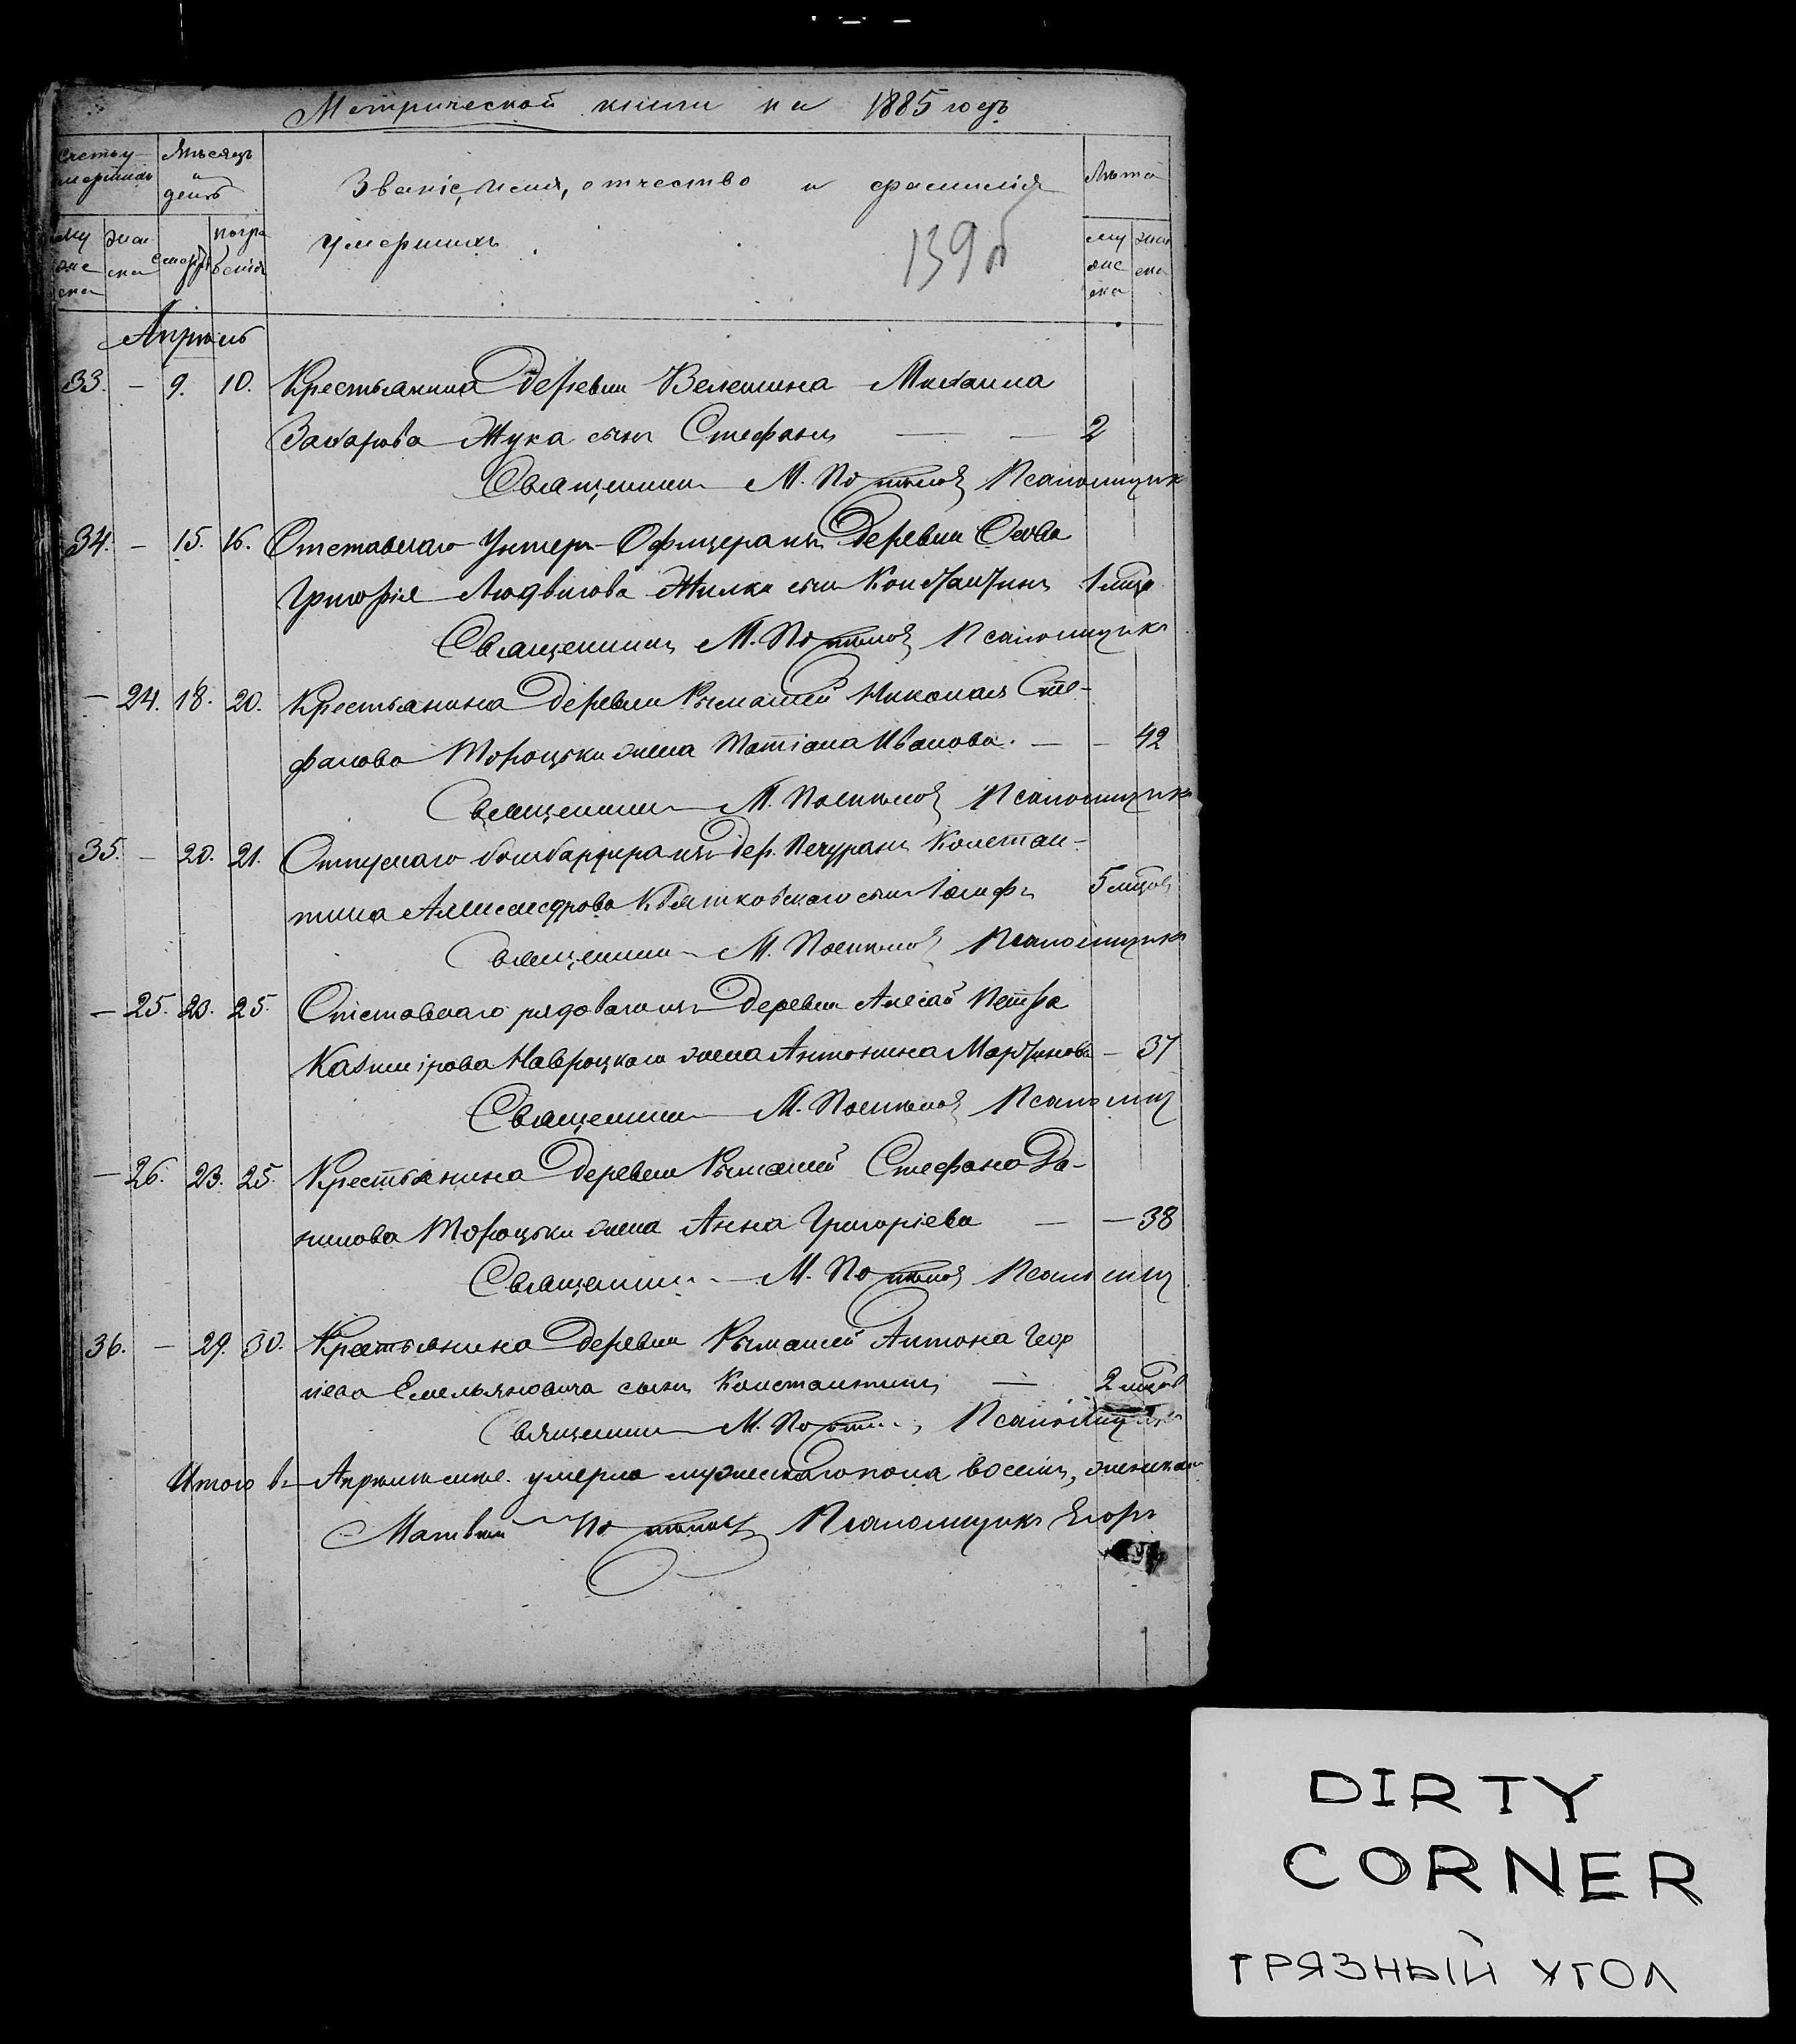 Метрической книги на 1885 годъ
Счетъ у-
мершихъ
Мѣсяцъ
и
день
Званіе, имя, отчество и фамилія
умершихъ.
Лѣта
му
жес
ка
жен
ска
смерти
погре
бенія
му
жес
ка
жен
ска
139б
Апрѣль
33. — 9. 10. Крестьянина деревни Велешина Михаила
Захарова Жука сынъ Стефанъ — — 2
Священникъ М. Псаломщикъ
34. — 15. 16. Отставнаго Унтеръ-Офицера изъ деревни Осова
Григорія Людвигова Жилки сынъ Константинъ 1 мца
Священникъ М. Псаломщикъ
— 24. 18. 20. Крестьянина деревни Рымашей Николая Сте-
фанова Тороцьки жена Татіана Иванова. — — 42
Священникъ М. Псаломщикъ
35. — 20. 21. Отпускнаго бомбардира изъ дер. Печуранъ Констан-
тина Александрова Квятковскаго сынъ Іосифъ 5 мцовъ
Священникъ М. Псаломщикъ
— 25. 23. 25. Отставнаго рядоваго изъ деревни Петра
Казимірова Навроцкаго жена Антонина Мартинова — 37
Священникъ М. Псаломщ
— 26. 23. 25. Крестьянина деревни Рымашей Стефана Да-
нилова Тороцьки жена Анна Григоріева — — 38
Священникъ М. Псаломщ
36. — 29. 30. Крестьянина деревни Рымашей Антона Геор
гіева Емельяновича сынъ Константинъ — 2 мцовъ
Священникъ М. Псаломщикъ
Итого въ Апрѣлѣ мце. умерло мужескаго пола восемь, женска
Матвѣй Псаломщикъ Егоръ
DIRTY
CORNER
ГРЯЗНЫЙ УГОЛ